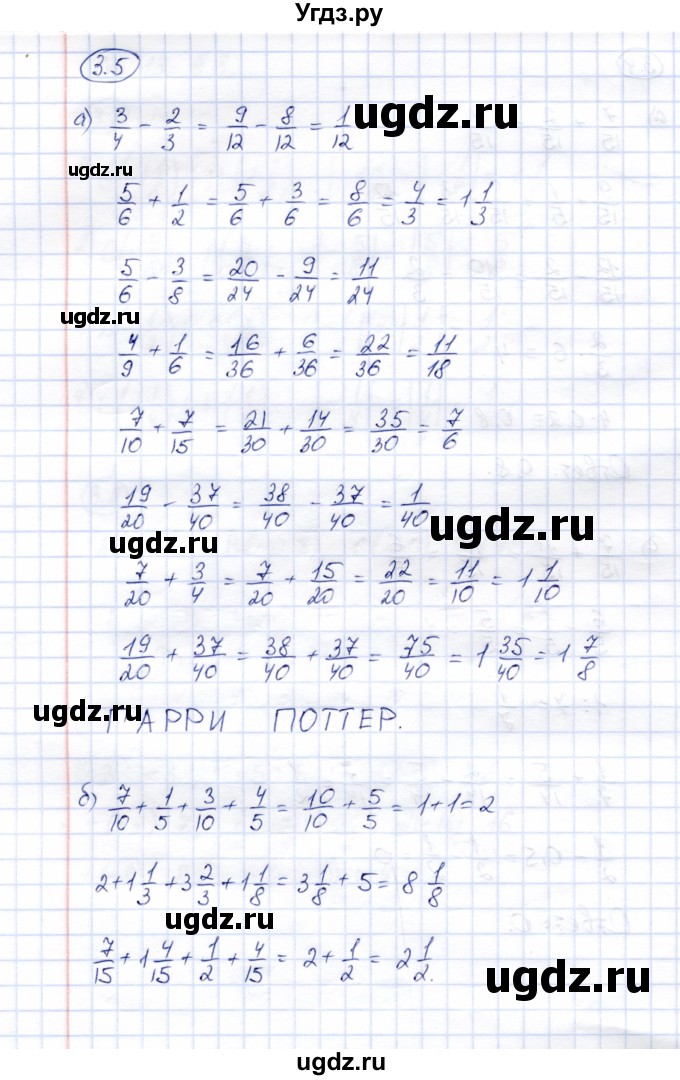 Угдз.ру
3.5
а) 3/4 - 2/3 = 9/12 - 8/12 = 1/12
ugdz.ru
ugdz.ru
5/6 + 1/2 = 5/6 + 3/6 = 8/6 = 4/3 = 1 1/3
5/6 - 3/8 = 20/24 - 9/24 = 11/24
ugdz.ru
4/9 + 1/6 = 16/36 + 6/36 = 22/36 = 11/18
7/10 + 7/15 = 21/30 + 14/30 = 35/30 = 7/6
19/20 - 37/40 = 38/40 - 37/40 = 1/40
ugdz.ru
ugdz.ru
7/20 + 3/4 = 7/20 + 15/20 = 22/20 = 11/10 = 1 1/10
19/20 + 37/40 = 38/40 + 37/40 = 75/40 = 1 35/40 = 1 7/8
ugdz.ru
ГАРРИ ПОТТЕР.
б) 7/10 + 1/5 + 3/10 + 4/5 = 10/10 + 5/5 = 1 + 1 = 2
2 + 1 1/3 + 3 2/3 + 1 1/8 = 3 1/8 + 5 = 8 1/8
ugdz.ru
7/15 + 1 4/15 + 1/2 + 4/15 = 2 + 1/2 = 2 1/2.
ugdz.ru
ugdz.ru